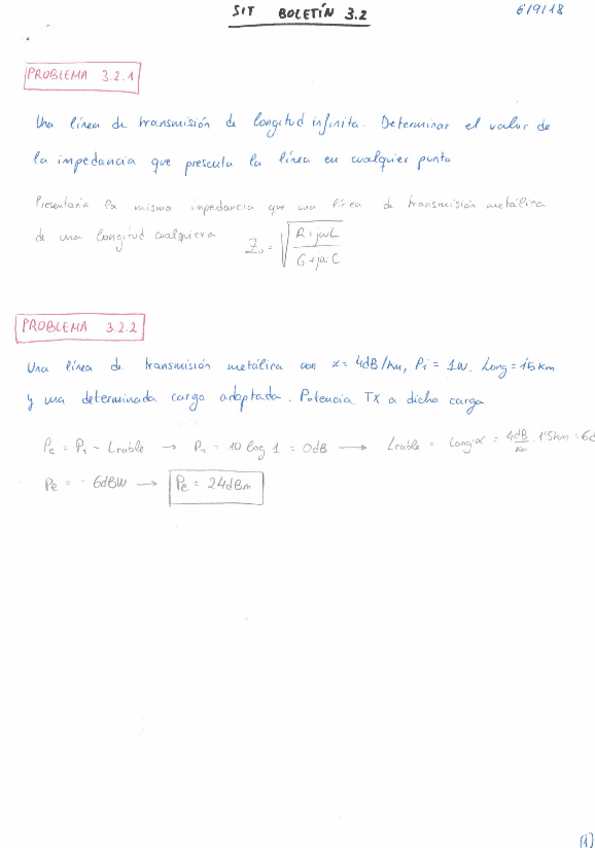 SIT BOLETÍN 3.2 6/9/18
PROBLEMA 3.2.1
Una línea de transmisión de longitud infinita. Determinar el valor de
la impedancia que presenta la línea en cualquier punto
Presentaría la misma impedancia que una línea de transmisión metálica
de una longitud cualquiera Z₀ = √((R+jωL)/(G+jωC))
PROBLEMA 3.2.2
Una línea de transmisión metálica con α = 4dB/km, Pi = 1W. Long = 1'5km
y una determinada carga adaptada. Potencia TX a dicha carga
Pe = Pi - Lcable → Pi = 10 log 1 = 0dB → Lcable = Long·α = 4dB/km · 1'5km = 6d
Pe = - 6dBW → Pe = 24dBm
(1)